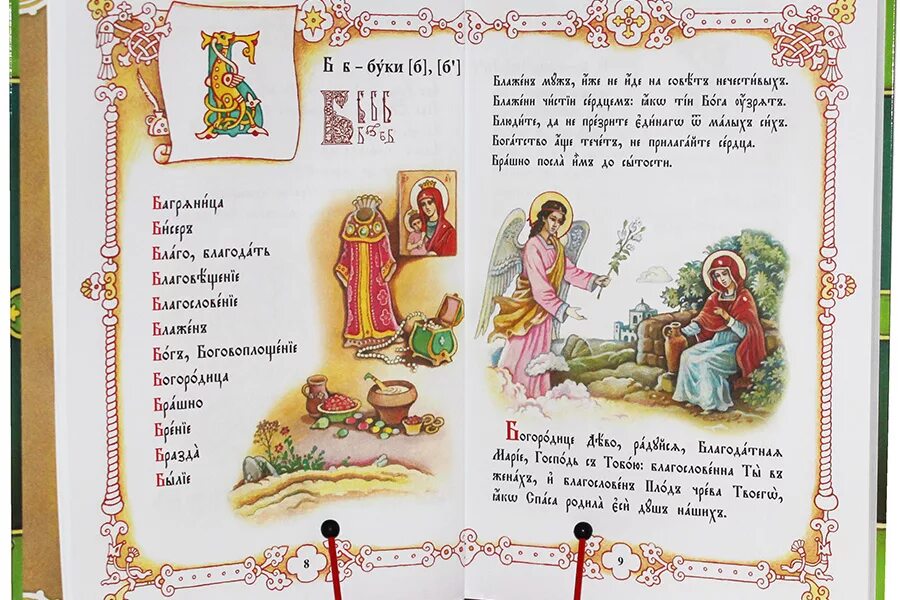 Б б – бу́ки [б], [б']
Багряни́ца
Би́серъ
Бла́го, благода́ть
Благовѣ́щенїе
Благослове́нїе
Блаже́нъ
Бо́гъ, Боговоплоще́нїе
Богоро́дица
Бра́шно
Бре́нїе
Бразда̀
Бы́лїе
8
Блаже́нъ му́жъ, и҆́же не и҆́де на совѣ́тъ нечести́выхъ.
Блаже́ни чи́стїи се́рдцемъ: ꙗ҆́кѡ ті́и Бо́га ᲂу҆́зрятъ.
Блюди́те, да не пре́зрите є҆ди́нагѡ ѿ ма́лыхъ си́хъ.
Бога́тство а҆́ще тече́тъ, не прилага́йте се́рдца.
Бра́шно посла̀ и҆̀мъ до сы́тости.
Богоро́дице Дѣ́во, ра́дуйся, Благода́тная
Марі́е, Госпо́дь съ Тобо́ю: благослове́нна Ты̀ въ
жена́хъ, и҆ благослове́нъ Пло́дъ чре́ва Твоегѡ̀,
ꙗ҆́кѡ Спа́са родила̀ є҆сѝ ду́шъ на́шихъ.
9